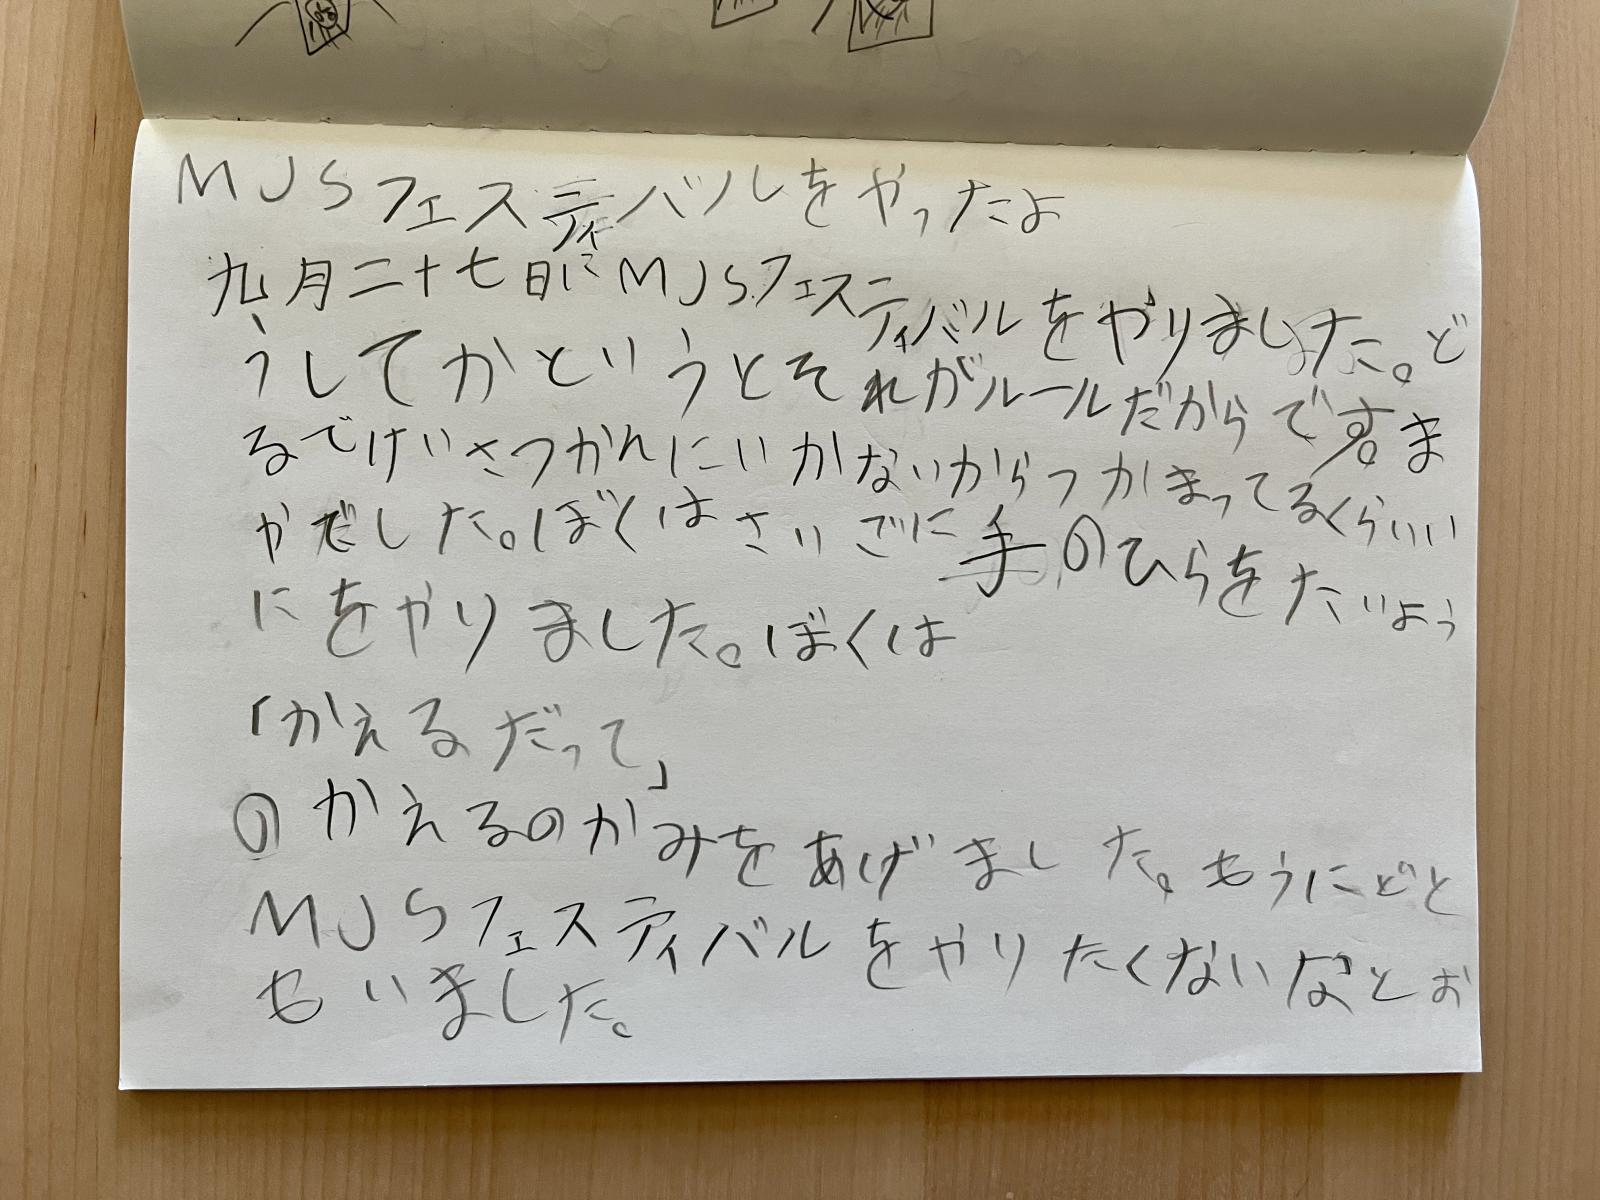 MJSフェスティバルをやったよ
九月二十七日にMJSフェスティバルをやりました。ど
うしてかというとそれがルールだからです。ま
るでけいさつかんにいかないからつかまってるくらいい
かだでした。ぼくはさいごに手のひらをたいよう
にをやりました。ぼくは
「かえるだって」
のかえるのかみをあげました。もうにどと
MJSフェスティバルをやりたくないなとお
もいました。